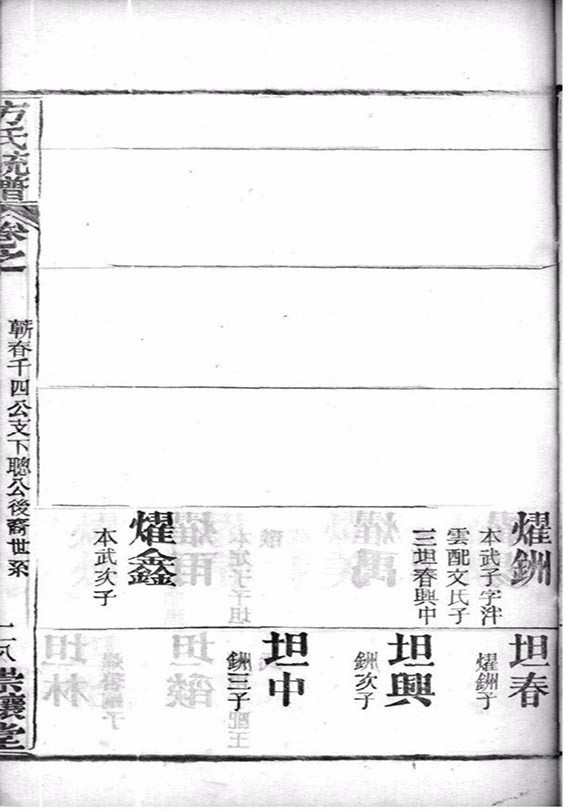 燿銂
本武子字泮
雲配文氏子
三坦春興中
燿鑫
本武次子
坦春
燿銂子
坦興
銂次子
坦中
銂三子
方氏疏譜
卷之
蘄春千四公支下聰公後裔世系
一八
崇讓堂